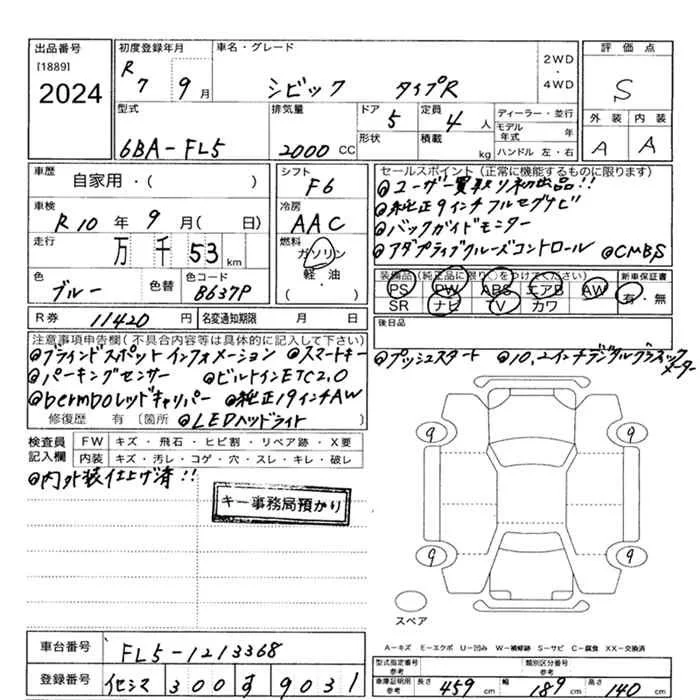 出品番号
[1889]
2024
初度登録年月
R7 9月
車名・グレード
シビック タイプR
2WD・4WD
評価点
S
外装 内装
A A
型式
6BA-FL5
排気量
2000 CC
ドア
5
形状
定員
4人
積載
kg
ディーラー・並行
モデル年式 年
ハンドル 左・右
車歴
自家用・( )
車検
R10年9月( 日)
走行
万千53km
色
ブルー
色替
色コード
B637P
シフト
F6
冷房
AAC
燃料
ガソリン
軽・油
( ・ )
セールスポイント(正常に機能するものに限ります)
@ユーザー買取り初出品!!
@純正9インチフルセグナビ
@バックガイドモニター
@アダプティブクルーズコントロール @CMBS
装備品(純正品に限り○をつけてください)
PS PW ABS エアB AW
SR ナビ TV カワ
新車保証書
有・無
R券 11420円
名変通知期限 月 日
後日品
注意事項申告欄(不具合内容等は具体的に記入して下さい)
@ブラインドスポットインフォメーション @スマートキー
@パーキングセンサー @ビルトインETC2.0
@bremboレッドキャリパー @純正19インチAW
修復歴 有 (箇所 @LEDヘッドライト )
@プッシュスタート @10.2インチデジタルグラフィックメーター
検査員記入欄
FW キズ・飛石・ヒビ割・リペア跡・X要
内装 キズ・汚レ・コゲ・穴・スレ・キレ・破レ
@内外装仕上げ済!!
キー事務局預かり
9 9
9 9
スペア
A-キズ E-エクボ U-凹み W-補修跡 S-サビ C-腐食 XX-交換済
車台番号
FL5-1213368
登録番号
300す9031
型式指定番号
参考
類別区分番号
参考
車庫証明用
参考
長さ 459cm 幅 189cm 高さ 140cm